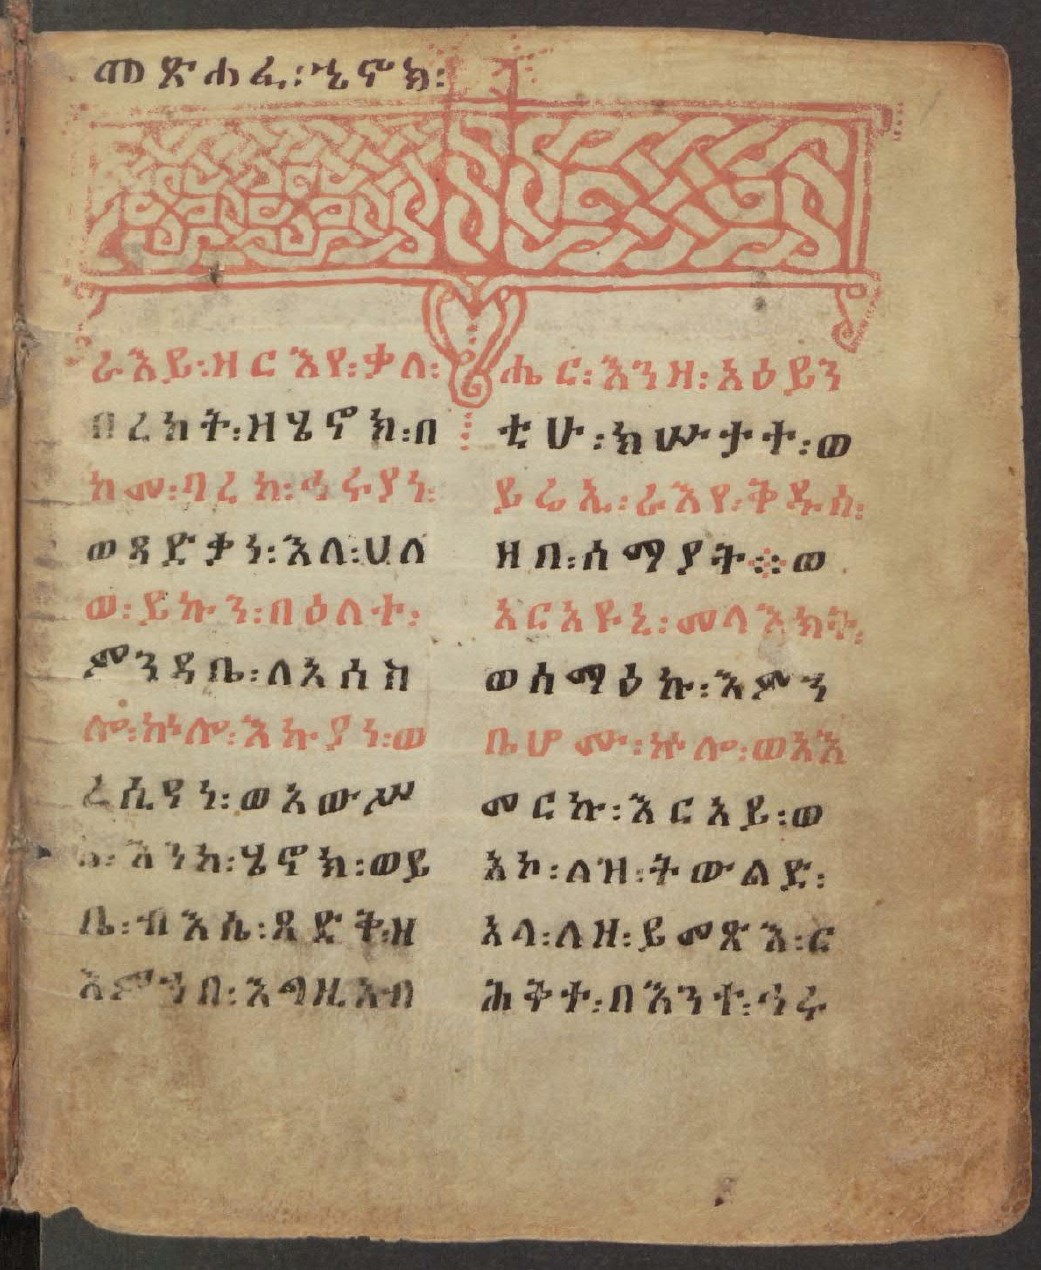 መጽሐፈ፡ሄኖክ፡
ራእይ፡ዘርእየ፡ቃለ፡
በረከት፡ዘሄኖክ፡በ
ከመ፡ባረከ፡ኅሩያነ፡
ወጻድቃነ፡እለ፡ሀለ
ወ፡ይኩን፡በዕለተ፡
ምንዳቤ፡ለአሰስ
ሎ፡ኵሎ፡እኩያነ፡ወ
ረሲዓነ፡ወአውሥ
አ፡እንከ፡ሄኖክ፡ወይ
ቤ፡ብእሴ፡ጻድቅ፡ዘ
እምኀበ፡እግዚአብ
ሔር፡እንዘ፡አዕይን
ቲሁ፡ክሡታት፡ወ
ይሬኢ፡ራእየ፡ቅዱሰ፡
ዘበ፡ሰማያት፨ወ
አርአዩኒ፡መላእክት፡
ወሰማዕኩ፡እምን
ቤሆሙ፡ኵሎ፡ወአእ
መርኩ፡እርአይ፡ወ
አኮ፡ለዝ፡ትውልድ፡
አላ፡ለዘ፡ይመጽእ፡ር
ሕቅተ፡በእንተ፡ኅሩ